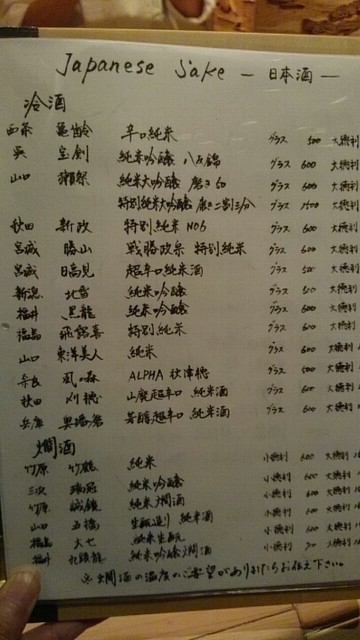 Japanese Sake — 日本酒 —
冷酒
西条 亀齢 辛口純米 グラス 500 大徳利
呉 宝剣 純米吟醸 八反錦 グラス 600 大徳利
山口 獺祭 純米大吟醸 磨き50 グラス 600 大徳利
特別純米大吟醸 磨き二割三分 グラス 1500 大徳利
秋田 新政 特別純米 NO6 グラス 600 大徳利
宮城 勝山 戦勝政宗 特別純米 グラス 600 大徳利
宮城 日高見 超辛口純米酒 グラス 500 大徳利
新潟 北雪 純米吟醸 グラス 500 大徳利
福井 黒龍 純米吟醸 グラス 600 大徳利
福島 飛露喜 特別純米 グラス 600 大徳利
山口 東洋美人 純米 グラス 600 大徳利
奈良 風の森 ALPHA 秋津穂 グラス 500 大徳利
秋田 刈穂 山廃超辛口 純米酒 グラス 600 大徳利
兵庫 奥播磨 芳醇超辛口 純米酒 グラス 600 大徳利
燗酒
竹原 竹鶴 純米 小徳利 600 大徳利
三次 瑞冠 純米吟醸 小徳利 600 大徳利
竹原 誠鏡 純米燗酒 小徳利 600 大徳利
山口 五橋 生酛造り 純米酒 小徳利 600 大徳利
福島 大七 純米生酛 小徳利 600 大徳利
福井 純米吟醸燗酒 小徳利 大徳利
※燗酒の温度のご要望がありましたらお伝え下さい。